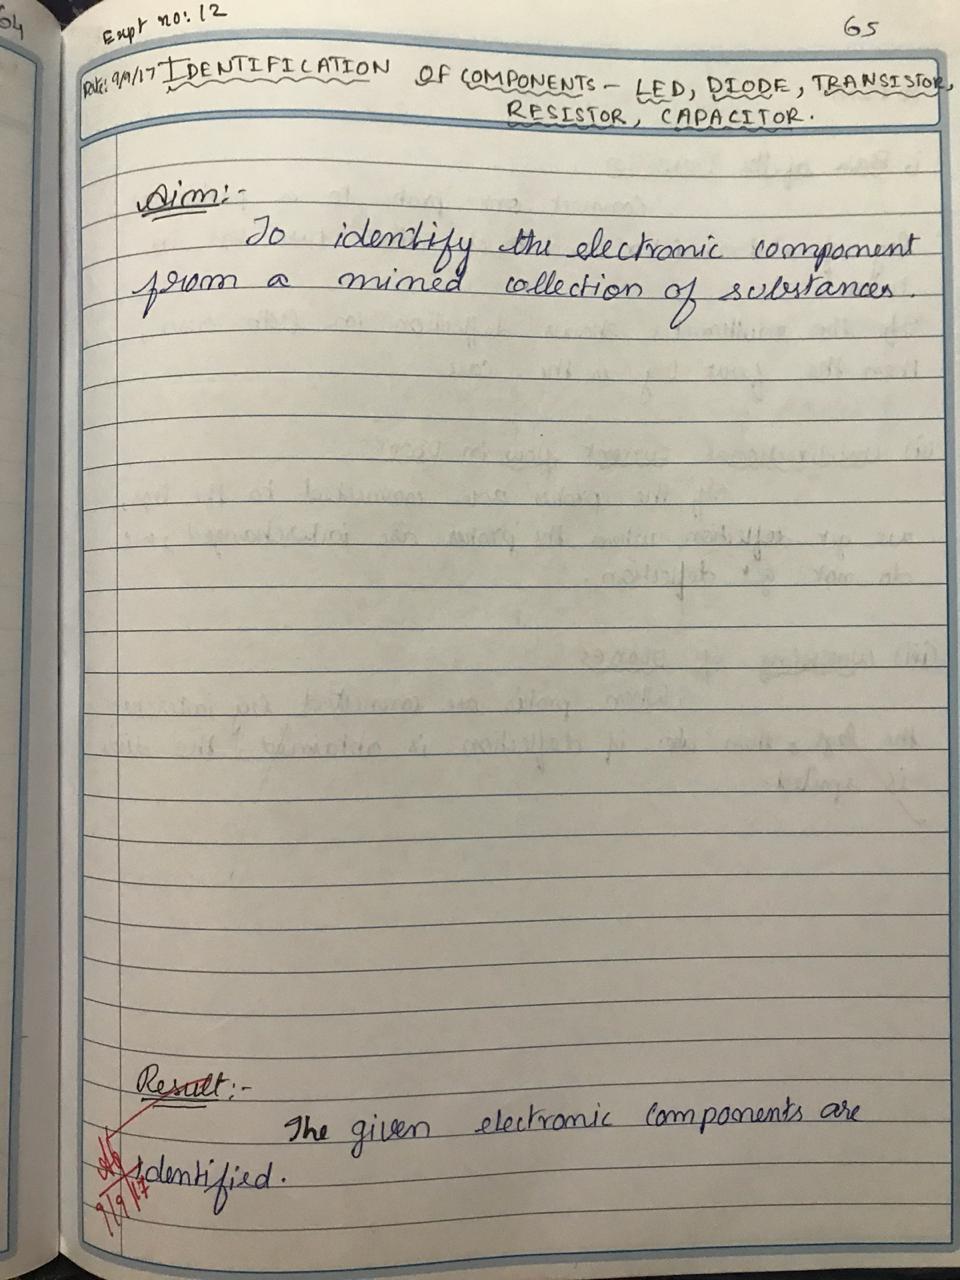 64
Expt no: 12
65
Date: 9/9/17 IDENTIFICATION OF COMPONENTS - LED, DIODE, TRANSISTOR,
RESISTOR, CAPACITOR.
Aim:-
To identify the electronic component
from a mined collection of substances.
Result:-
The given electronic components are
identified.
9/9/17